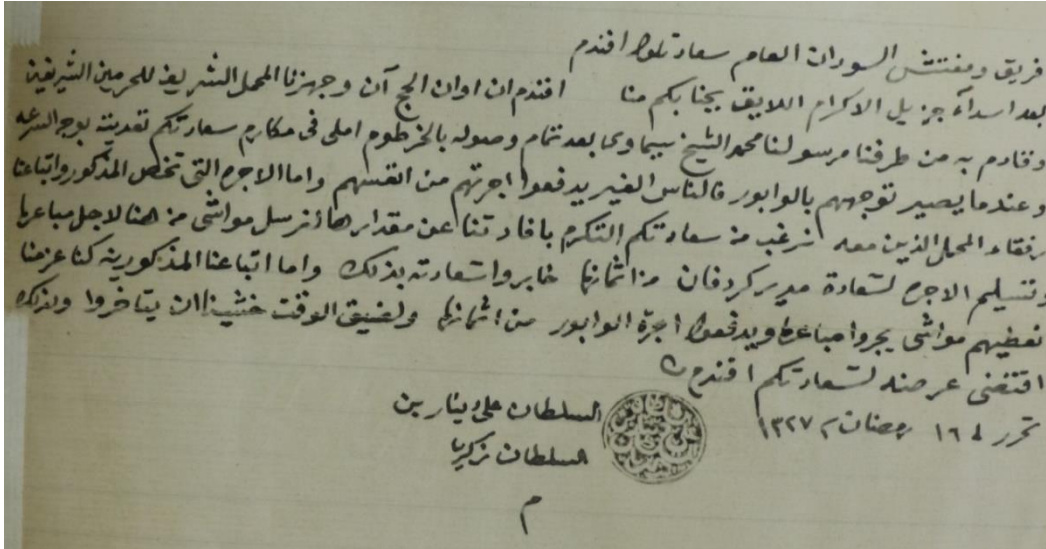 فريق ومفتش السودان العام سعادتلو افندم
بعد اسداء جزيل الاكرام اللايق بجنابكم منا افندم ان اوان الحج آن وجهزنا المحمل الشريف للحرمين الشريفين
وقادم به من طرفنا مرسولنا محمد الشيخ سيماوى بعد تمام وصوله بالخرطوم املى فى مكارم سعادتكم تعديته بوجه السرعه
وعندما يصير توجههم بالوابور فالناس الغير يدفعوا اجرتهم من انفسهم واما الاجره التى تخص المذكور واتباعنا
رفقاء المحمل الذين معه نرغب من سعادتكم التكرم بافادتنا عن مقدارها لنرسل مواشى من هنا لاجل مباعها
وتسليم الاجره لسعادة مدير كردفان من اثمانها خابروا سعادته بذلك واما اتباعنا المذكورين كنا عزمنا
نعطيهم مواشى يجروا مباعها ويدفعوا اجرة الوابور من اثمانها ولضيق الوقت خشينا ان يتاخروا ولذلك
اقتضى عرضه لسعادتكم افندم
تحرر فى ١٦ رمضان سنة ١٣٢٧
السلطان على دينار بن
السلطان زكريا
م